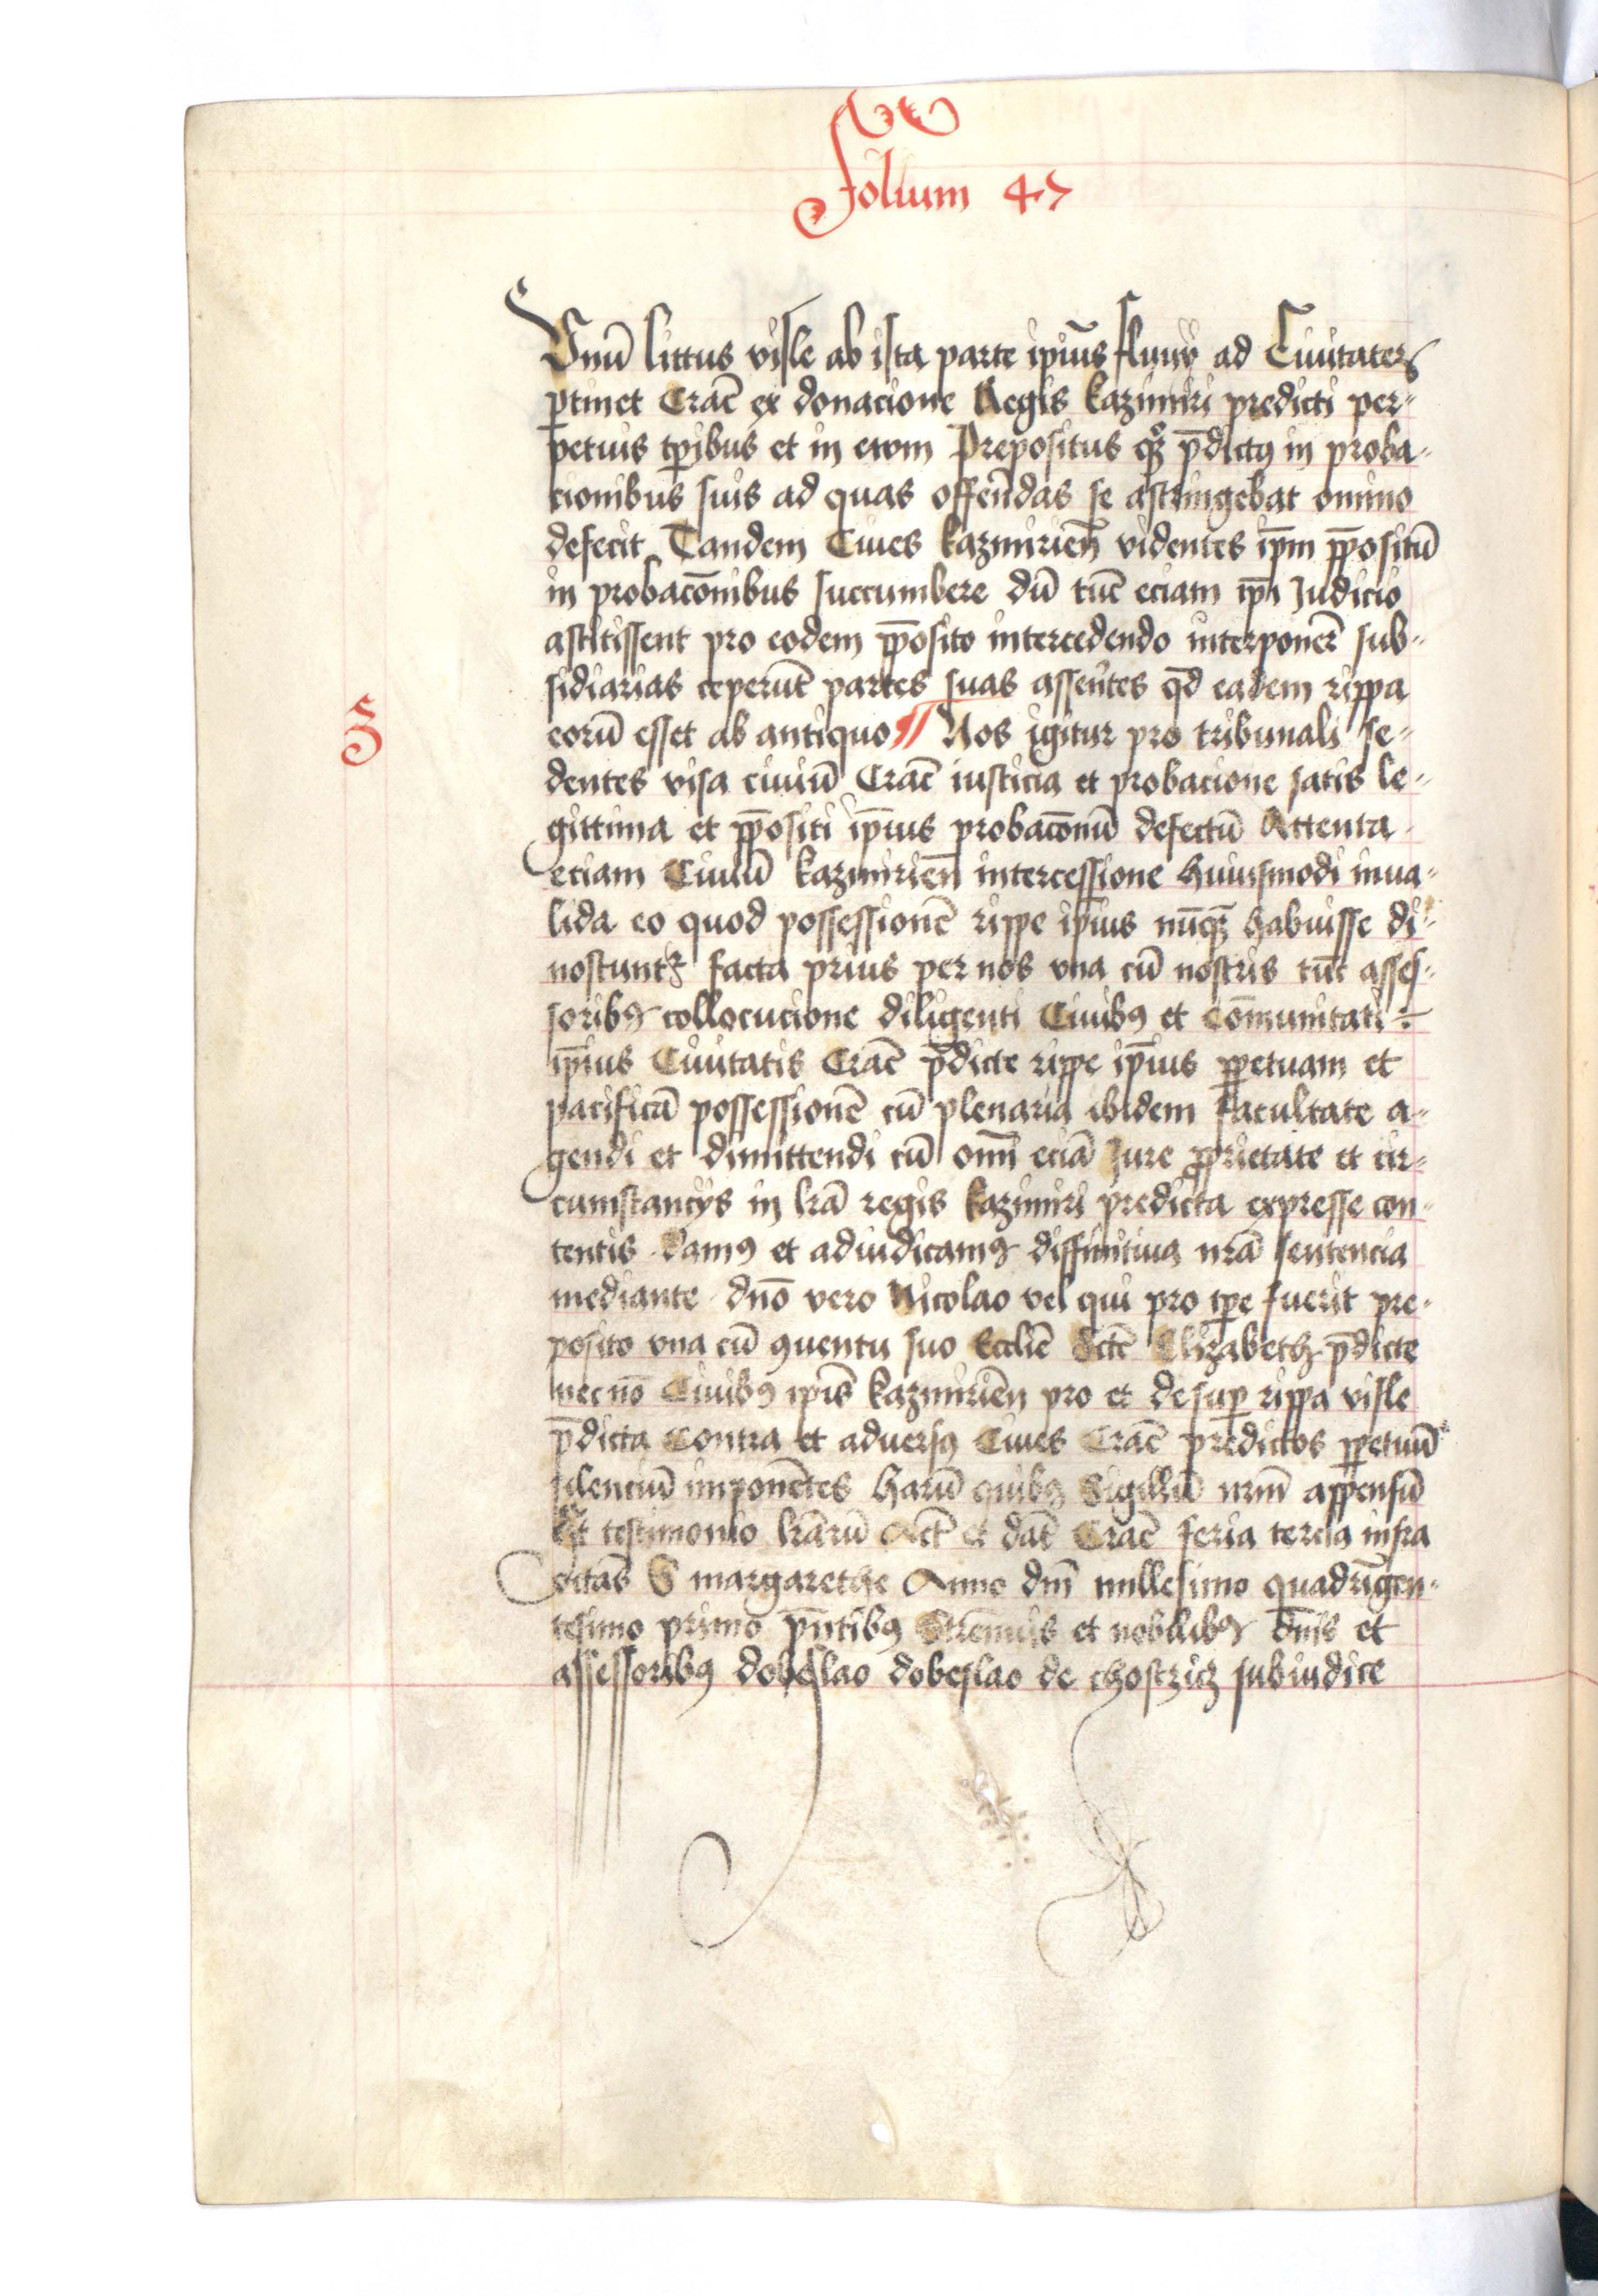 Folium 47
Vnū littus visle ab ista parte ipius fluuii ad Ciuitatem
ptinet Crac̄ ex donacione Regis kazimiri predicti per-
petuis tpibus et in ewm Prepositus qꝫ pdictꝰ in proba-
cionibus suis ad quas ostendas se astringebat omino
defecit Tandem Ciues kazimirien̄ videntes ipm ppositū
in probacōnibus succumbere dū tūc eciam ipi Judicio
astitissent pro eodem pposito intercedendo interponer̄ sub-
sidiarias ceperūt partes suas asserētes qd eadem rippa
eorū esset ab antiquo Nos igitur pro tribunali se-
3
dentes visa ciuiū Crac̄ iusticia et probacione satis le-
gittima et ppositi ipius probacōnū defectū Attenta
eciam Ciuiū kazimirien̄ intercessione huiusmodi inua-
lida eo quod possessionē rippe ipius nūqꝫ habuisse di-
noscuntr facta prius per nos vna cū nostris tūc asses-
soribꝰ collocucione diligenti Ciuibꝰ et Cōmunitati
ipius Ciuitatis Crac̄ pdicte rippe ipius ppetuam et
pacificā possessionē cū plenaria ibidem facultate a-
gendi et dimittendi cū omī eciā Jure pprietate et cir-
cumstancijs in lrā regis kazimiri predicta expresse con-
tentis damꝰ et adiudicamꝰ diffinitiua nrā sentencia
mediante dno vero Nicolao vel qui pro tpe fuerit pre-
posito vna cū ꝯuentu suo Ecclie scte Elizabeth pdicte
necnō Ciuibꝰ ipis kazimirien̄ pro et desup rippa visle
pdicta Contra et aduersꝰ Ciues Crac̄ predictos ppetuū
silenciū imponētes harū quibꝰ Sigillū nrm̄ appensū
est testimonio lrārū Act̄ et dat̄ Crac̄ feria tercia infra
octas̄ S margarethe Anno dn̄i millesimo quadringen-
tesimo primo pn̄tibꝰ Strenuis et nobilibꝰ dn̄is et
assessoribꝰ dobeslao dobeslao de chostzicz subiudice